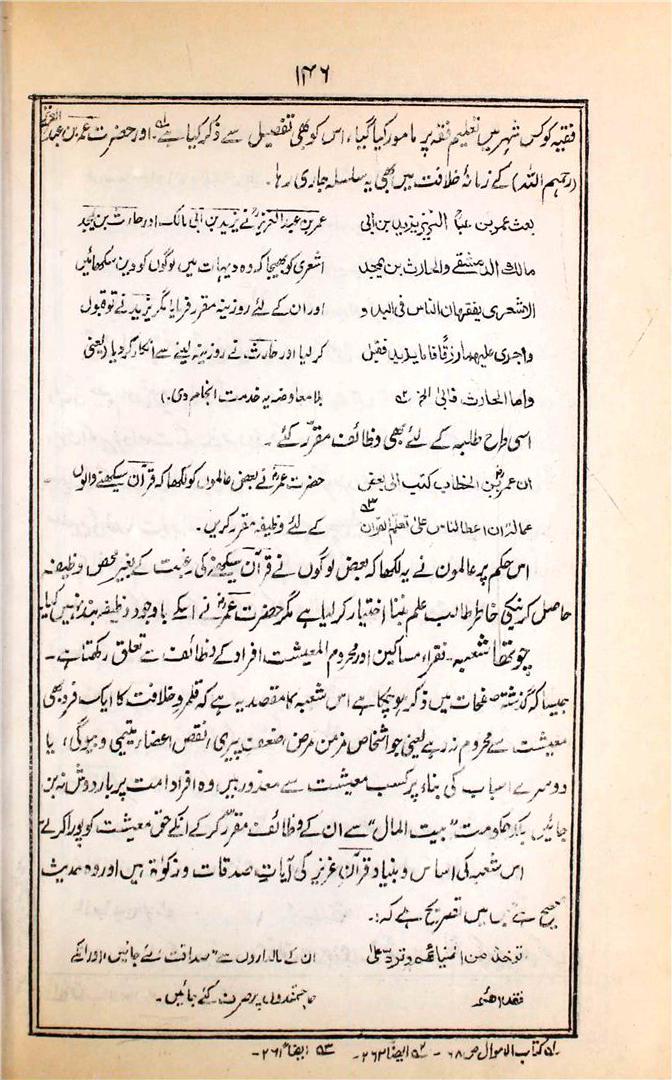 ۱۴۶
فقیہ کو کس شہر میں تعلیم فقہ پر مامور کیا گیا، اس کو بھی تفصیل سے ذکر کیا ہے ۱ھ۔ اور حضرت عمر بن عبد العزیز
(رحہم اللہ) کے زمانۂ خلافت میں بھی یہ سلسلہ جاری رہا۔
بعث عمر بن عبد العزیز یزید بن ابی
مالک الدمشقے والحارث بن یمجد
الاشعری یفقهان الناس فی البدو
واجری علیهما رزقا فاما یزید فقبل
واما الحارث فابی الخ ۲ھ
عمر بن عبد العزیزؒ نے یزید بن ابی مالک اور حارث بن یمجد
اشعری کو بھیجا کہ وہ دیہات میں لوگوں کو دین سکھائیں
اور ان کے لئے روزینہ مقرر فرمایا مگر یزید نے تو قبول
کر لیا اور حارث نے روزینہ لینے سے انکار کر دیا (یعنی
بلا معاوضہ یہ خدمت انجام دی۔)
اسی طرح طلبہ کے لئے بھی وظائف مقرر کئے۔
ان عمرؓ بن الخطاب کتب الی بعض
عماله ان اعط الناس علی تعلم القرآن ۳ھ
حضرت عمرؓ نے بعض عالموں کو لکھا کہ قرآن سیکھنے والوں
کے لئے وظیفہ مقرر کریں۔
اس حکم پر عالموں نے یہ لکھا کہ بعض لوگوں نے قرآن سیکھنے کی رغبت کے بغیر محض وظیفہ
حاصل کرنیکی خاطر طالب علم بننا اختیار کر لیا ہے مگر حضرت عمرؓ نے اسکے باوجود وظیفہ بند نہیں کیا۔
چوتھا شعبہ۔ فقراء مساکین اور محروم المعیشت افراد کے وظائف سے تعلق رکھتا ہے۔
جیسا کہ گذشتہ صفحات میں ذکر ہو چکا ہے اس شعبہ کا مقصد یہ ہے کہ قلمرو خلافت کا ایک فرد بھی
معیشت سے محروم نہ رہے یعنی جو اشخاص مزمن مرض، ضعف پیری، نقص اعضاء، یتیمی و بیوگی، یا
دوسرے اسباب کی بناء پر کسب معیشت سے معذور ہیں وہ افراد امت پر بار دوش نہ بن
جائیں بلکہ حکومت "بیت المال" سے ان کے وظائف مقرر کر کے انکے حق معیشت کو پورا کرے
اس شعبہ کی اساس و بنیاد قرآن عزیز کی آیات صدقات و زکوٰۃ ہیں اور وہ حدیث
صحیح ہے جس میں تصریح ہے کہ:۔
توخذ من اغنیائهم وترد علی
فقراءهم
ان کے مالداروں سے "صداقت لئے جائیں" اور انکے
حاجتمندوں پر صرف کئے جائیں۔
۱ھ کتاب الاموال ص ۶۸۔ ۲ھ ایضاً ۲۶۲۔ ۳ھ ایضاً ۲۶۱۔